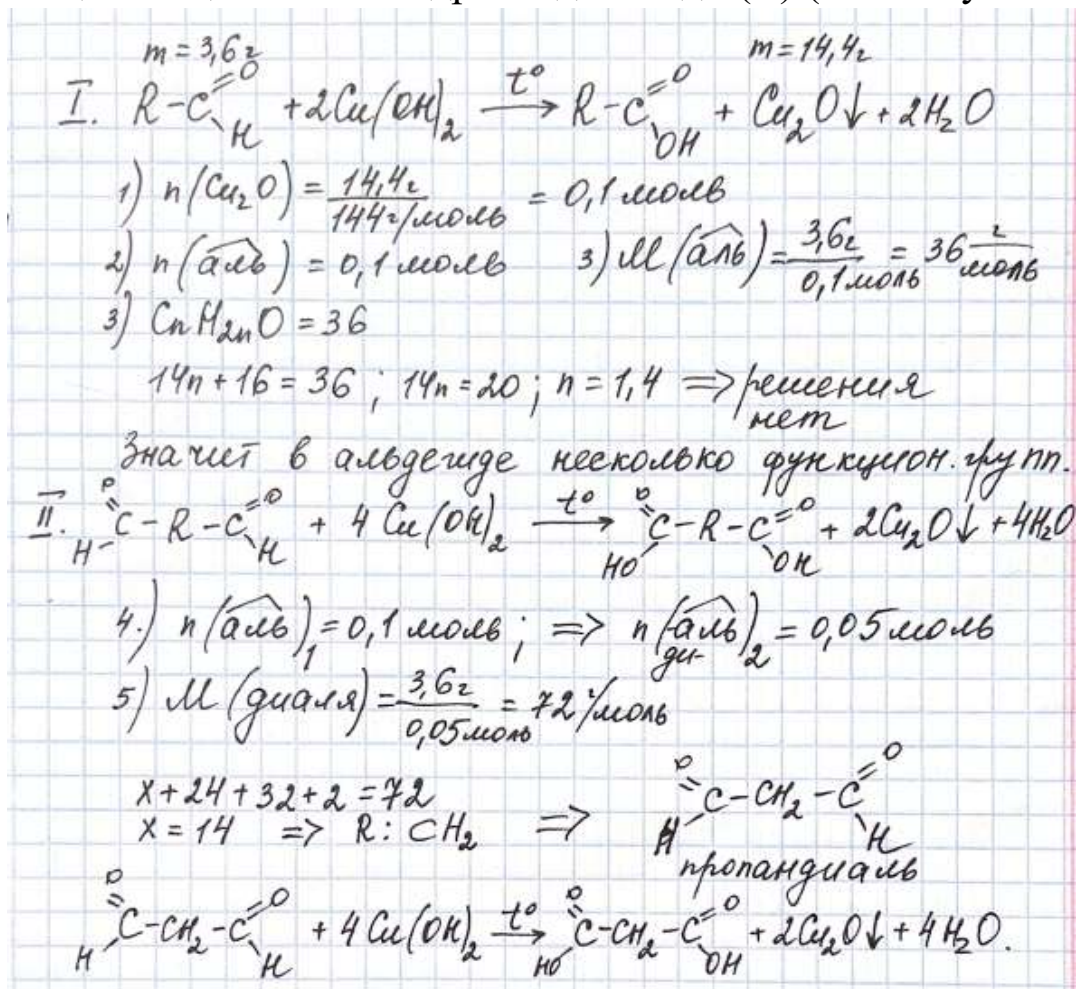 m = 3,6г m = 14,4г
I. R-C=O H + 2Cu(OH)2 t° → R-C=O OH + Cu2O↓ + 2H2O
1) n(Cu2O) = 14,4г / 144г/моль = 0,1 моль
2) n(аль) = 0,1 моль 3) M(аль) = 3,6г / 0,1 моль = 36 г/моль
3) CnH2nO = 36
14n + 16 = 36 ; 14n = 20 ; n = 1,4 => решения
нет
Значит в альдегиде несколько функцион. групп.
II. O=C H -R-C=O H + 4Cu(OH)2 t° → O=C HO -R-C=O OH + 2Cu2O↓ + 4H2O
4.) n(аль)1 = 0,1 моль ; => n(ди-аль)2 = 0,05 моль
5) M(диаля) = 3,6г / 0,05 моль = 72 г/моль
x + 24 + 32 + 2 = 72
x = 14 => R: CH2 => O=C H -CH2-C=O H
пропандиаль
O=C H -CH2-C=O H + 4Cu(OH)2 t° → O=C HO -CH2-C=O OH + 2Cu2O↓ + 4H2O.